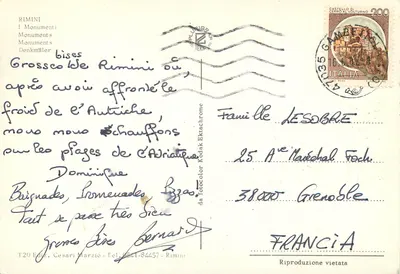 RIMINI
I Monumenti
Monuments
Monuments
Denkmäler
bises
Grosses de Rimini où,
après avoir affronté le
froid de l'Autriche,
nous nous échauffons
sur les plages de l'Adriatique
Dominique
Baignades, Promenades, Pizzas!
Tout se passe très bien
Grosses bises Bernard
da fotocolor Kodak Ektachrome
200
ITALIA
47035
Famille LESOBRE
25 Ave Maréchal Foch
38000 Grenoble
FRANCIA
Cesari Marzio - Tel. 0541-94457 - Rimini
Riproduzione vietata